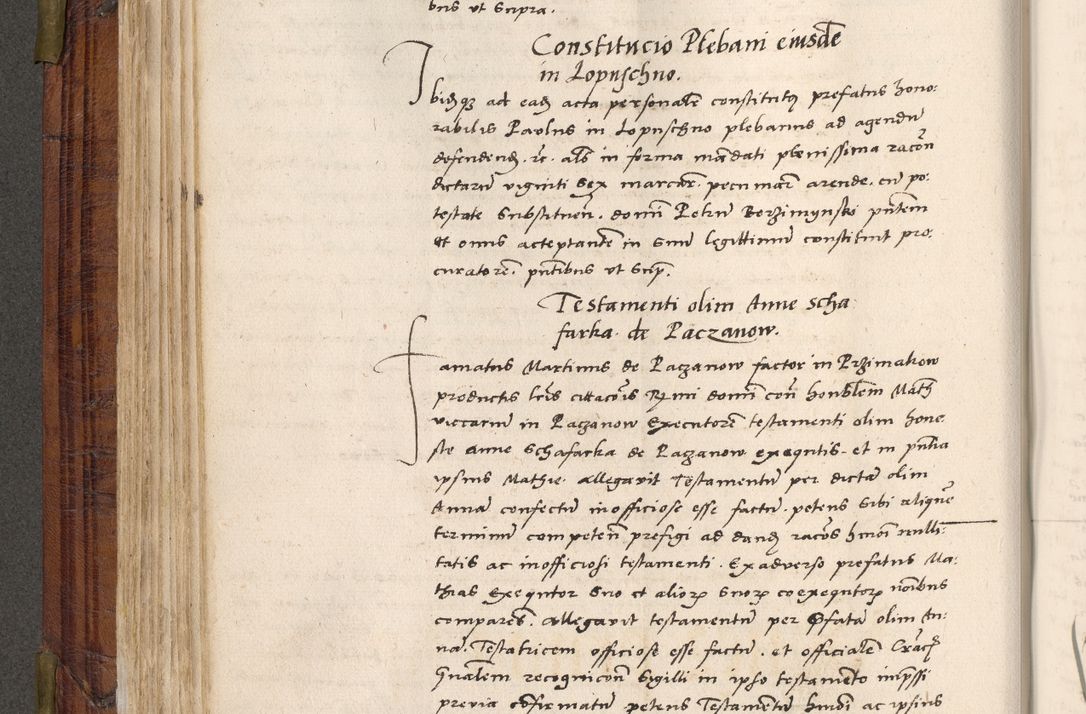 bus ut Supra.
Constitucio Plebani eiusdē
in Lopuschno.
Ibidqz ad eadȝ acta personalr constitutꝯ prefatus hono:
rabilis Paulus in Lopuschno plebanus ad agendū
defendendȝ. rc. als in forma mādati plenissima racōn
dictarū viginti Sex marcar. pecuniar arende. cū po:
testate Substituen. domī Petrū Borzimynski pntem
et onus acceptantē in Suū legittimū constituit pro:
curatorē. pntibus ut Sup.
Testamenti olim Anne scha
farka de Paczanow.
Famatus Martinus de Paczanow factor in Przimakow
productis lris citacōis Rmi domī con honblem Math
viccariū in Paczanow Executorē testamenti olim hone
ste Anne Schafarka de Paczanow exequtis. et in pntia
ipsius Mathie. allegavit Testamentū per dictā olim
Annā confectū inofficiose esse factū. petens Sibi aliquē
terminū competen prefigi ad dandȝ racōes hmoi nulli:
tatis ac inofficiosi testamenti. Ex adverso prefatus Ma:
thias Exequtor Suo et aliorꝝ Suorꝝ coexequtorꝝ noībus
comparēs. allegavit testamentū per Pfatā olim An:
nā. Testatricem officiose esse factū. et officialē Crac
Gnalem recognicōn Sigilli in ipso testamēto impssi
previa cōfirmatū petens Testamentū hmōi ac ipsius